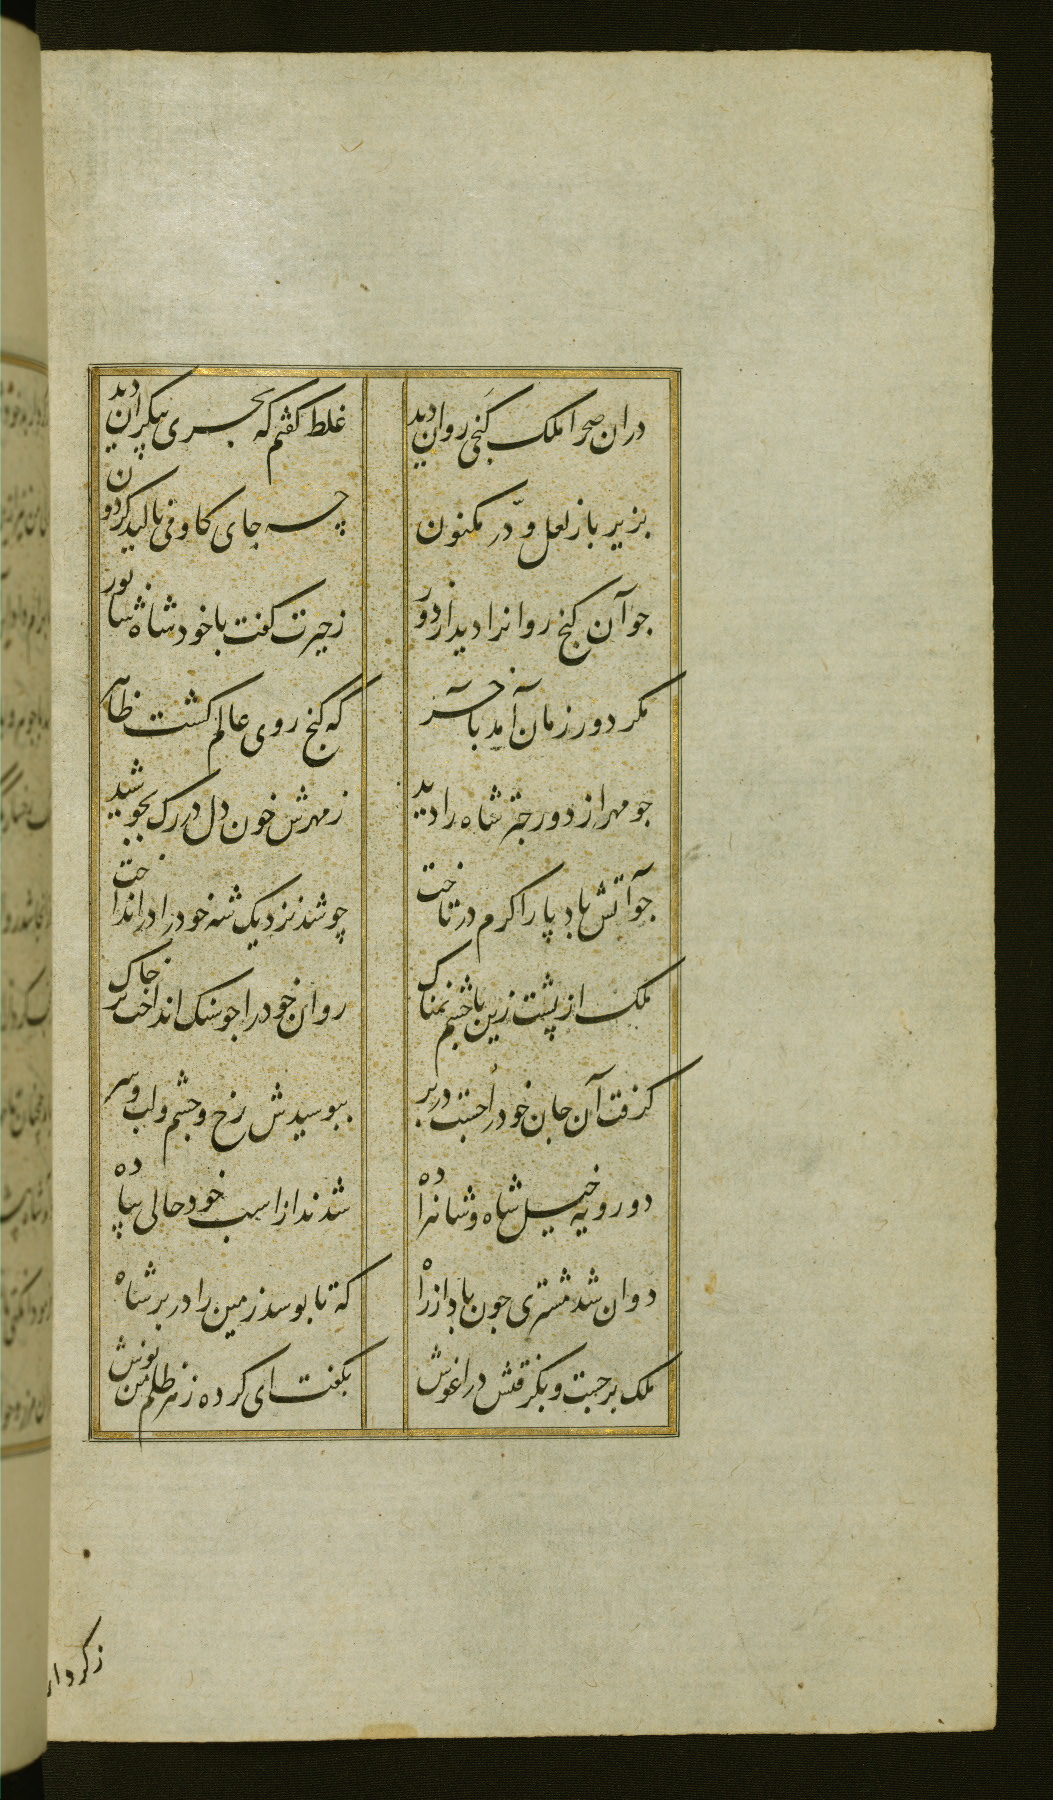 دران صحرا ملک کنجی روان دید
غلط کفتم که بحری بیکران دید
بزیر بار لعل و در مکنون
چه جای کاو فی بالید کردون
جو آن کنج روانرا دید از دور
زحیرت کفت با خود شاه شابور
مکر دور زمان آمد بآخر
که کنج روی عالم کشت ظاهر
جو مهر از دور جتر شاه را دید
زمهرش خون دل در رک بجوشید
جو آتش باد پا را کرم در تاخت
چو شد نزدیک شه خود را در انداخت
ملک از پشت زین با جشم نمناک
روان خود را جو سنک انداخت بر خاک
کرفت آن جان خود را جست در بر
ببوسیدش رخ و جشم و لب و سر
دو رویه خیل شاه و شاهزاده
شدند از اسب خود حالی پیاده
دوان شد مشتری جون باد از راه
که تا بوسد زمین را در بر شاه
ملک برجست و بکرفتش در اغوش
بکفت ای کرده زهر ظلم من نوش
زکردار